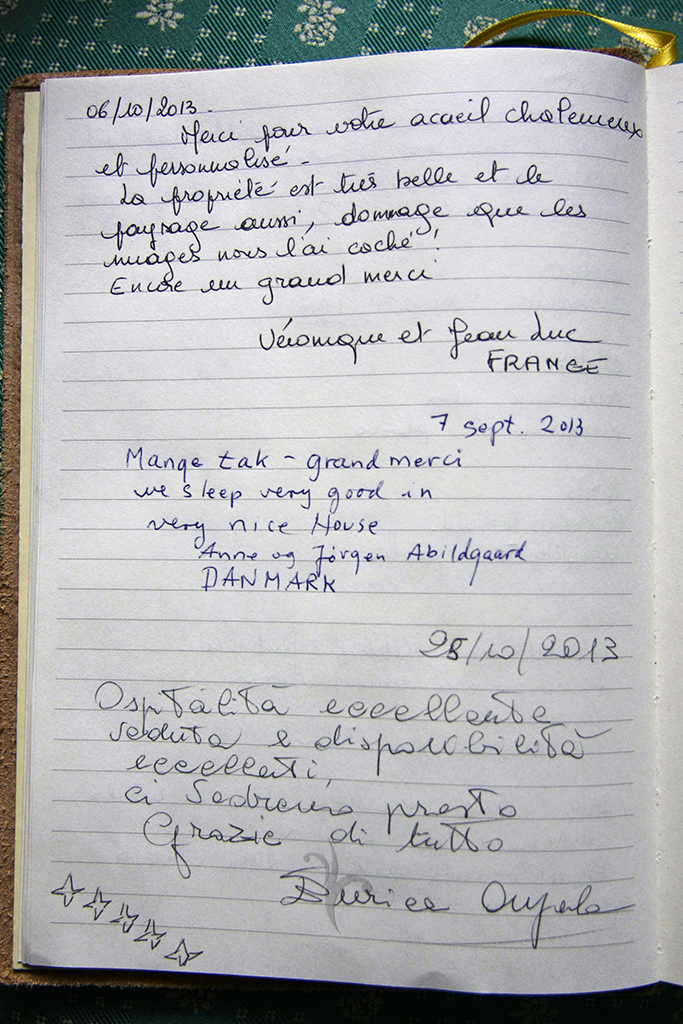 06/10/2013.
Merci pour votre accueil chaleureux
et personnalisé.
La propriété est très belle et le
paysage aussi, dommage que les
nuages nous l'ai caché !
Encore un grand merci
Véronique et Jean Luc
FRANCE
7 sept. 2013
Mange tak - grand merci
we sleep very good in
very nice House
Anne og Jörgen Abildgaard
DANMARK
25/10/2013
Ospitalità eccellente
veduta e disponibilità
eccellenti,
ci Sedremo presto
Grazie di tutto